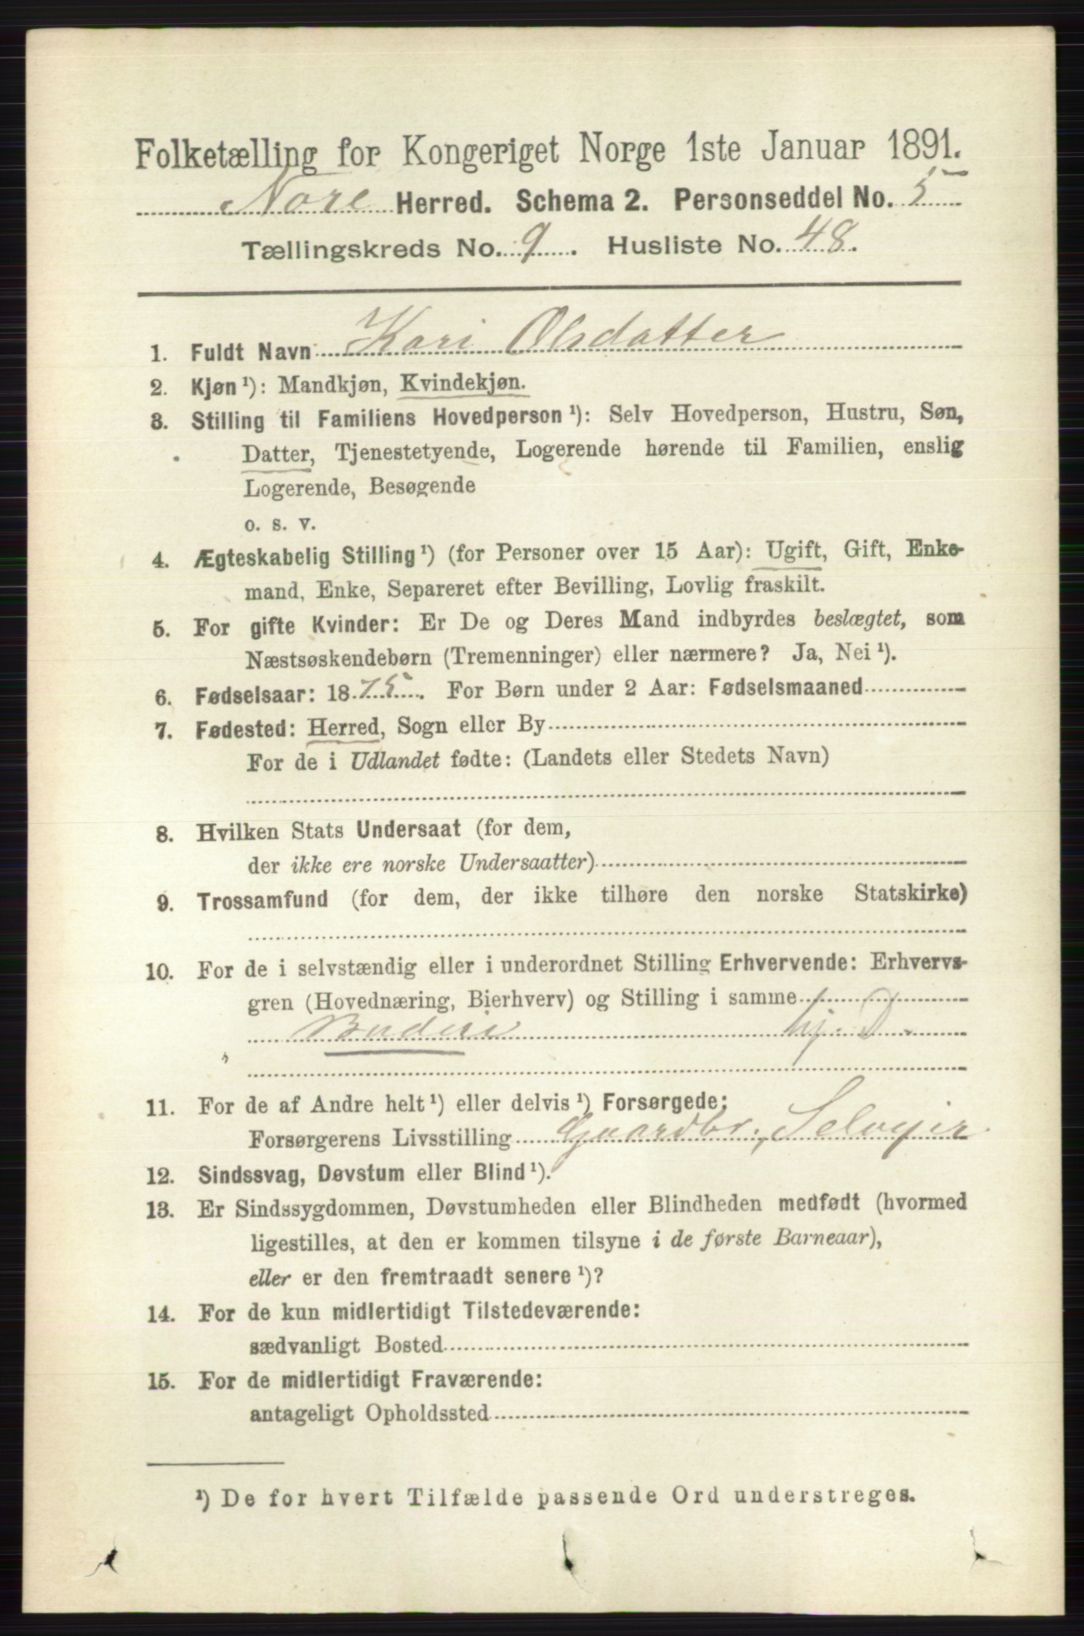 Folketælling for Kongeriget Norge 1ste Januar 1891.
Nore Herred. Schema 2. Personseddel No. 5
Tællingskreds No. 9. Husliste No. 48.
1. Fuldt Navn Kari Olsdatter
2. Kjøn ¹): Mandkjøn, Kvindekjøn.
3. Stilling til Familiens Hovedperson ¹): Selv Hovedperson, Hustru, Søn,
Datter, Tjenestetyende, Logerende hørende til Familien, enslig
Logerende, Besøgende
o. s. v.
4. Ægteskabelig Stilling ¹) (for Personer over 15 Aar): Ugift, Gift, Enke-
mand, Enke, Separeret efter Bevilling, Lovlig fraskilt.
5. For gifte Kvinder: Er De og Deres Mand indbyrdes beslægtet, som
Næstsøskendebørn (Tremenninger) eller nærmere? Ja, Nei ¹).
6. Fødselsaar: 1875. For Børn under 2 Aar: Fødselsmaaned
7. Fødested: Herred, Sogn eller By
For de i Udlandet fødte: (Landets eller Stedets Navn)
8. Hvilken Stats Undersaat (for dem,
der ikke ere norske Undersaatter)
9. Trossamfund (for dem, der ikke tilhøre den norske Statskirke)
10. For de i selvstændig eller i underordnet Stilling Erhvervende: Erhvervs-
gren (Hovednæring, Bierhverv) og Stilling i samme
Budeie hj. D.
11. For de af Andre helt ¹) eller delvis ¹) Forsørgede:
Forsørgerens Livsstilling Gaardbr., Selveier
12. Sindssvag, Døvstum eller Blind ¹).
13. Er Sindssygdommen, Døvstumheden eller Blindheden medfødt (hvormed
ligestilles, at den er kommen tilsyne i de første Barneaar),
eller er den fremtraadt senere ¹)?
14. For de kun midlertidigt Tilstedeværende:
sædvanligt Bosted
15. For de midlertidigt Fraværende:
antageligt Opholdssted
¹) De for hvert Tilfælde passende Ord understreges.